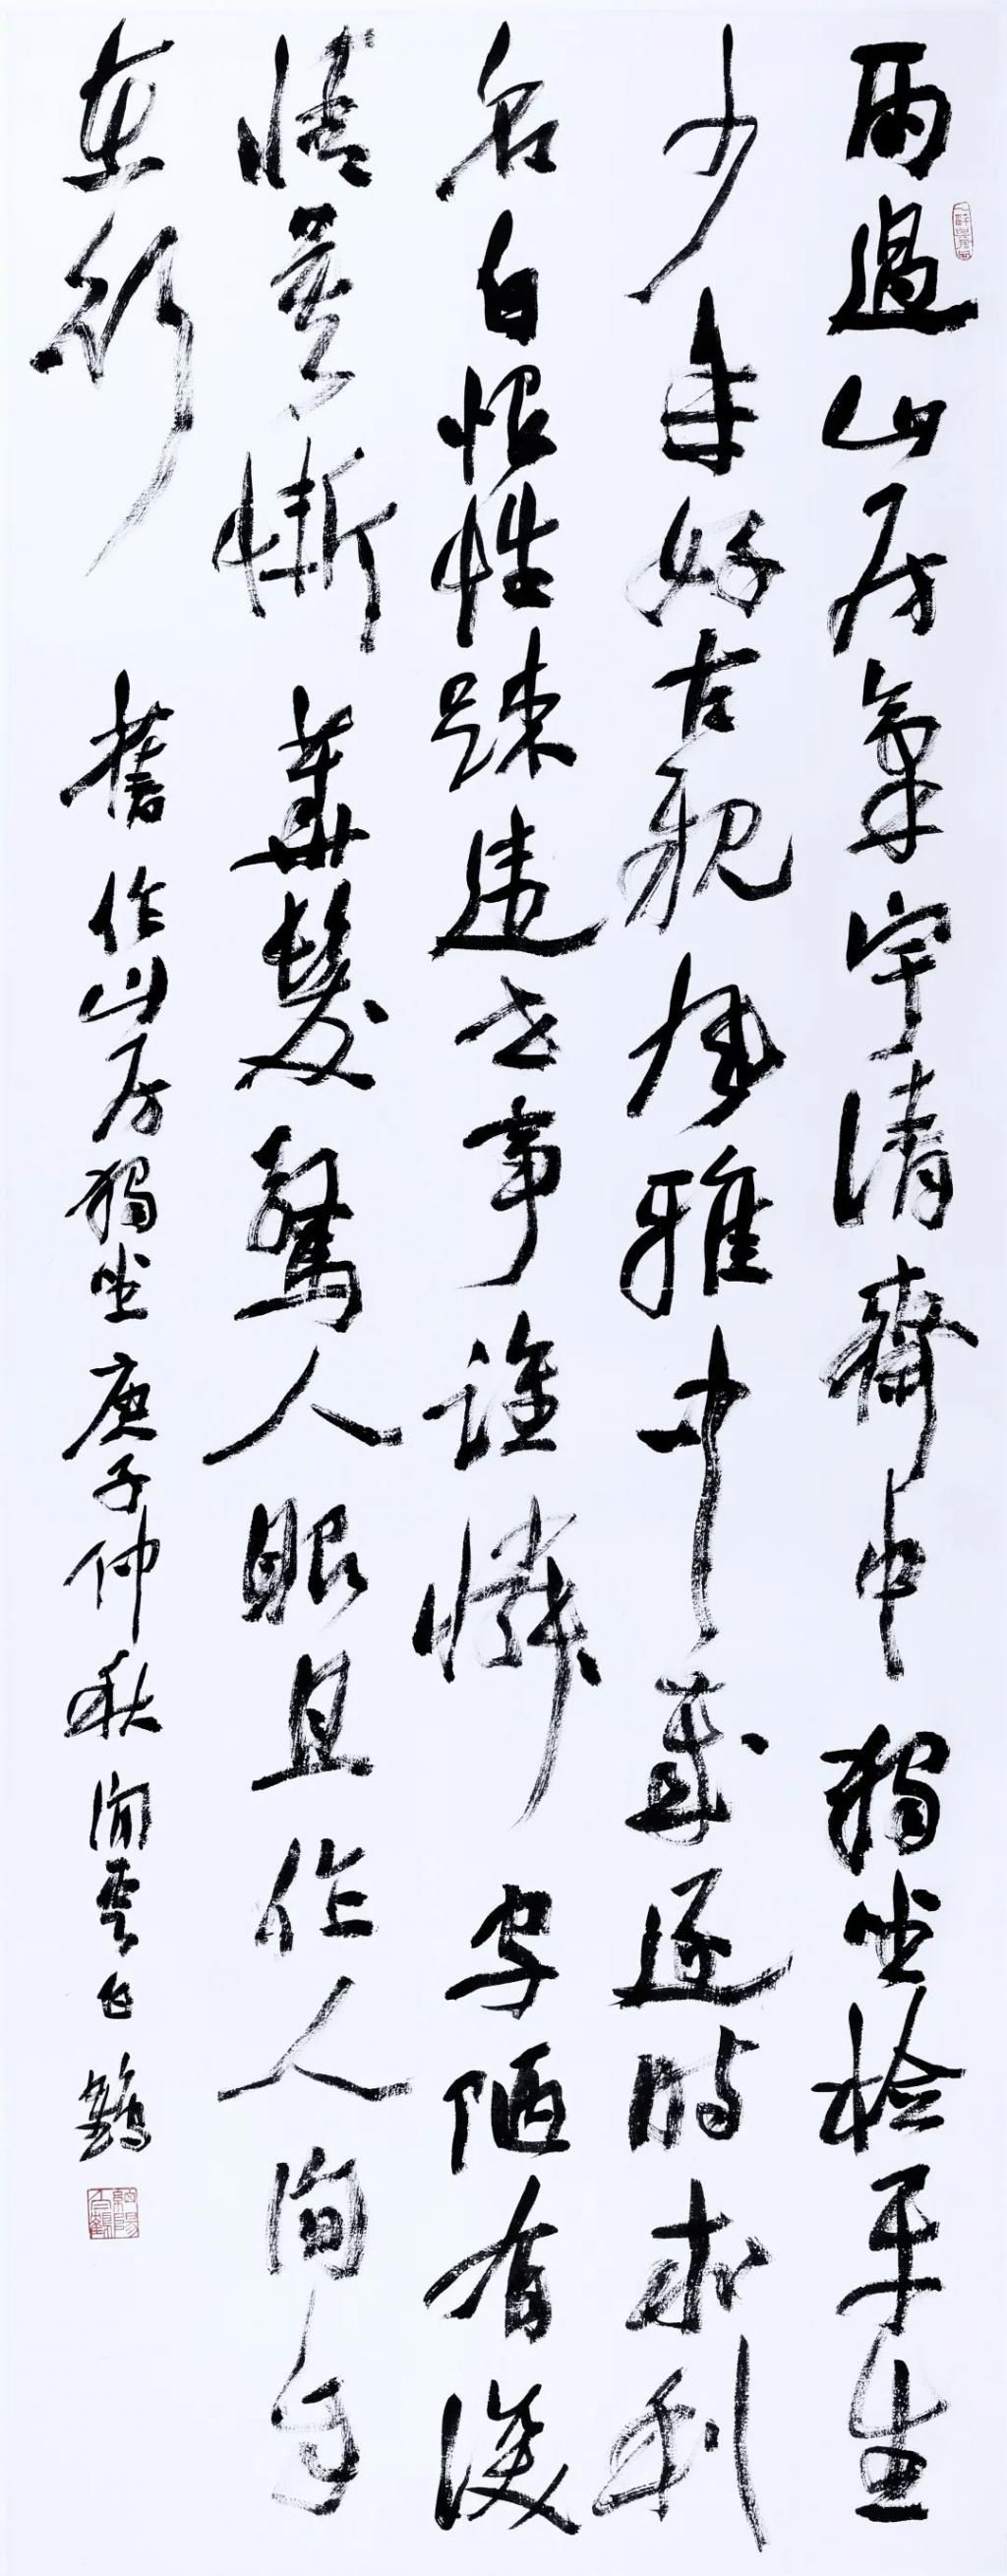 雨過山房氣宇清齋中獨坐檢平生
少年好古耽風雅中歲逐時求利
名自恨性疎違世事誰憐守陋有深
情莫慚華髮驚人眼且作人間自
在行 舊作山房獨坐 庚子仲秋 閒雲白鶴